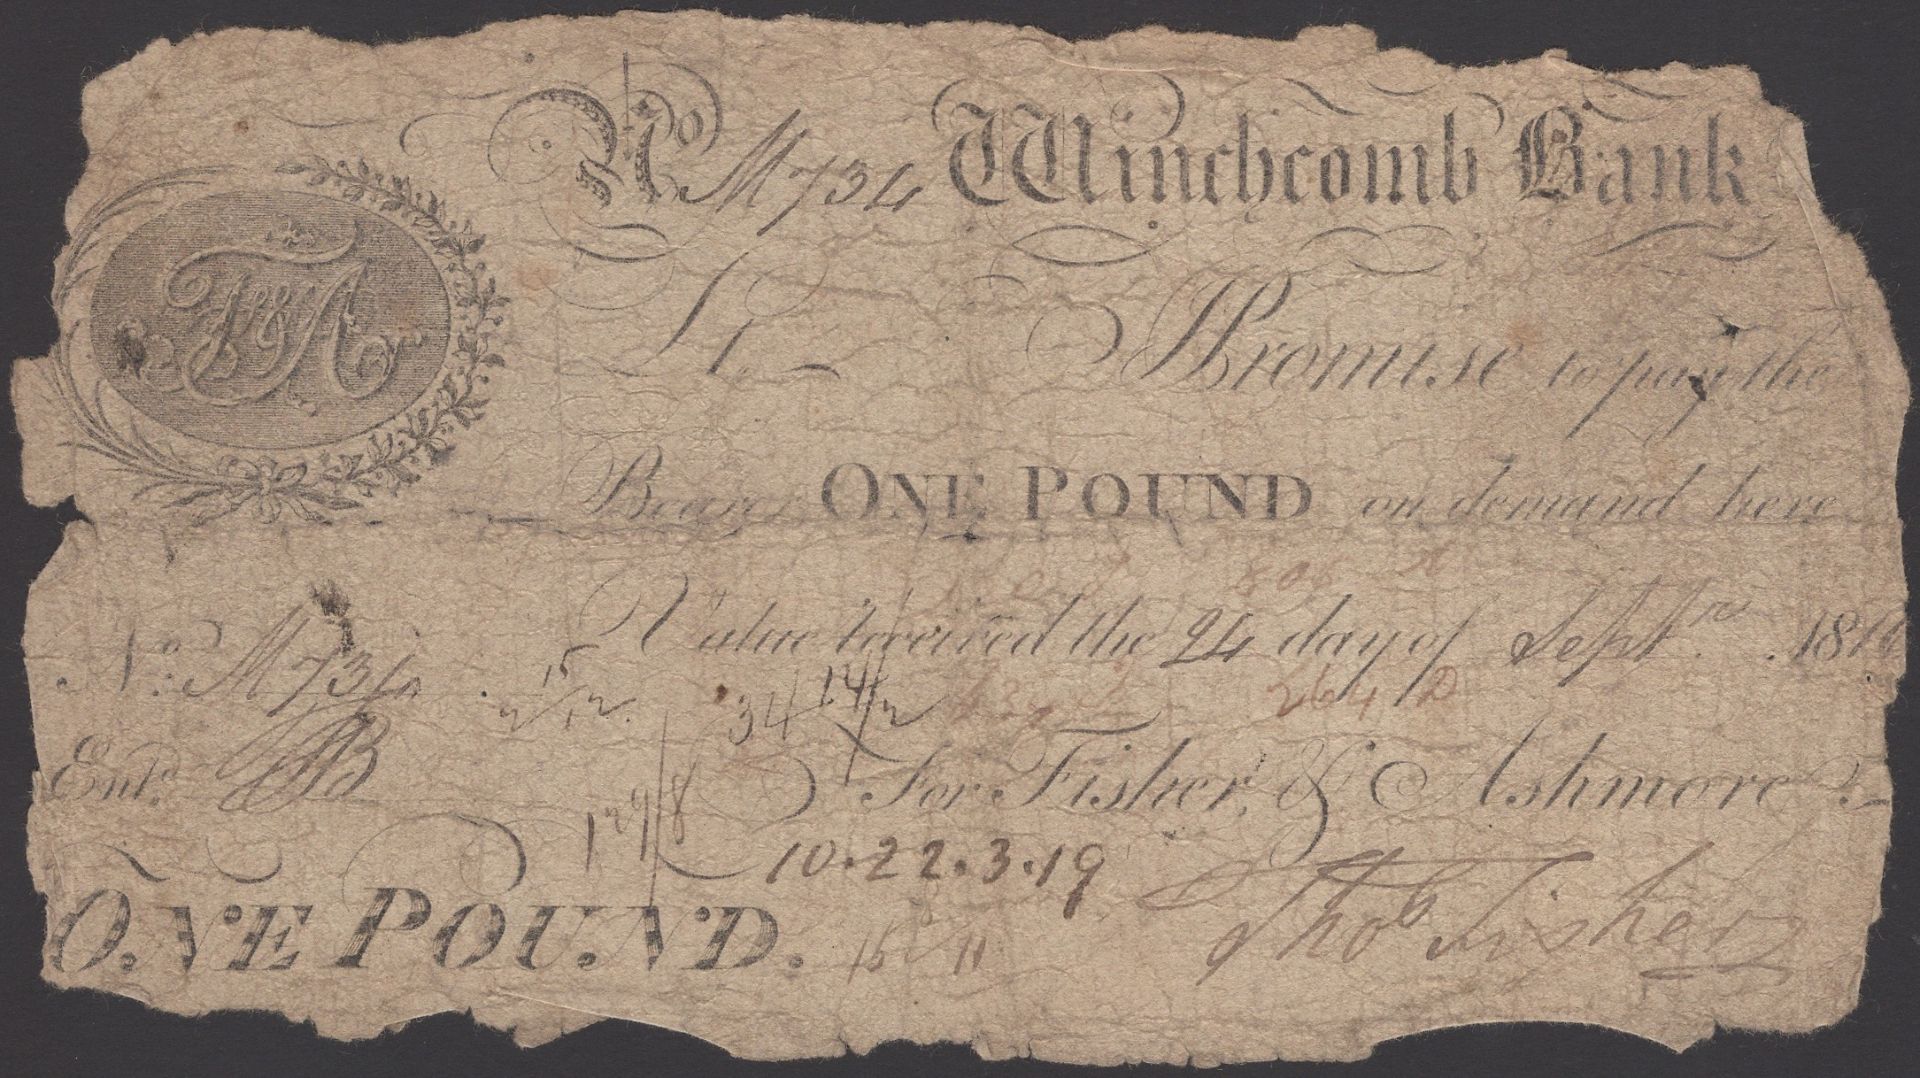 No M734 Winchcomb Bank
F&A
£1. I Promise to pay the
Bearer ONE POUND on demand here
Value received the 24 day of Sept.r 1816
No. M734
Ent.d
For Fisher & Ashmore
10.22.3.19
ONE POUND.
15 11
Tho.s Fisher